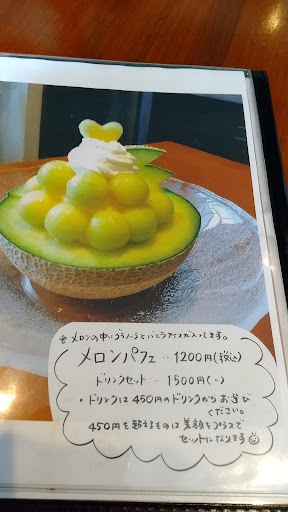 ※メロンの中にグラノーラとバニラアイスが入ってます。
メロンパフェ ‥ 1200円(税込)
ドリンクセット ‥ 1500円(〃)
・ドリンクは450円のドリンクからお選び
ください。
450円を超えるものは差額をプラスで
セットになります